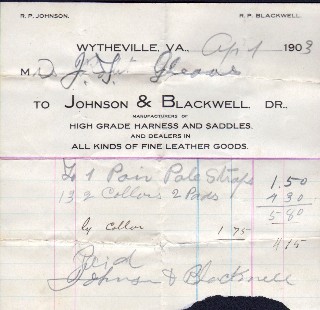 R. P. JOHNSON. R. P. BLACKWELL.
WYTHEVILLE, VA., Apl 1 1903
M
TO JOHNSON & BLACKWELL, DR.,
MANUFACTURERS OF
HIGH GRADE HARNESS AND SADDLES,
AND DEALERS IN
ALL KINDS OF FINE LEATHER GOODS.
To 1 Pair Pole Straps 1.50
2 Collars 2 Pads 4 30
5 80
by Collar 1 75
Paid
Johnson & Blackwell